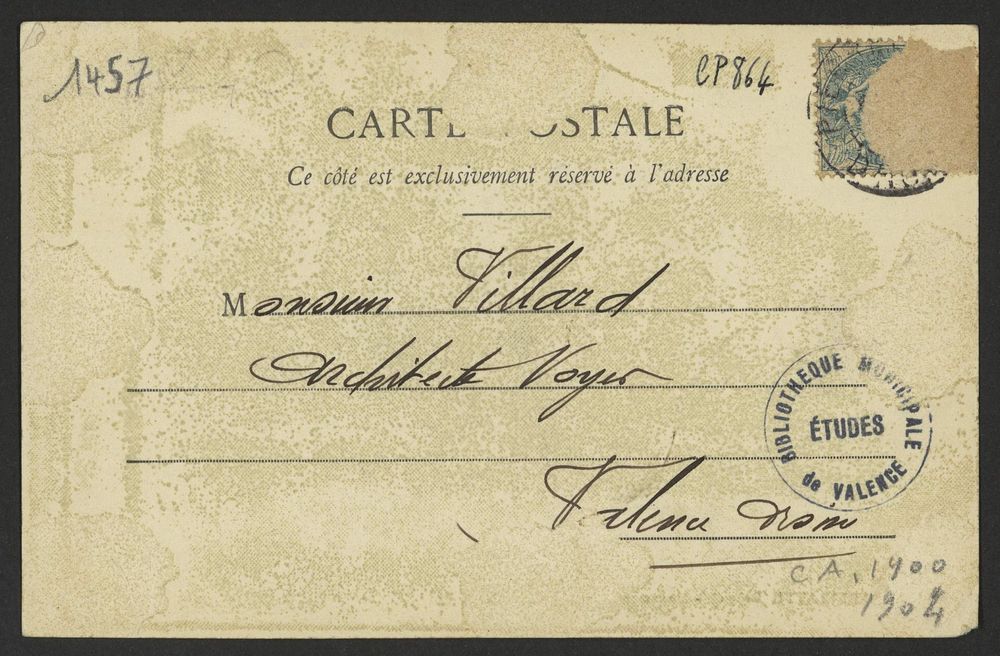 1457
CP 864
CARTE POSTALE
Ce côté est exclusivement réservé à l'adresse
Monsieur Villard
Architecte Voyer
BIBLIOTHEQUE MUNICIPALE
ÉTUDES
de VALENCE
Valence Drome
CA. 1900
1904